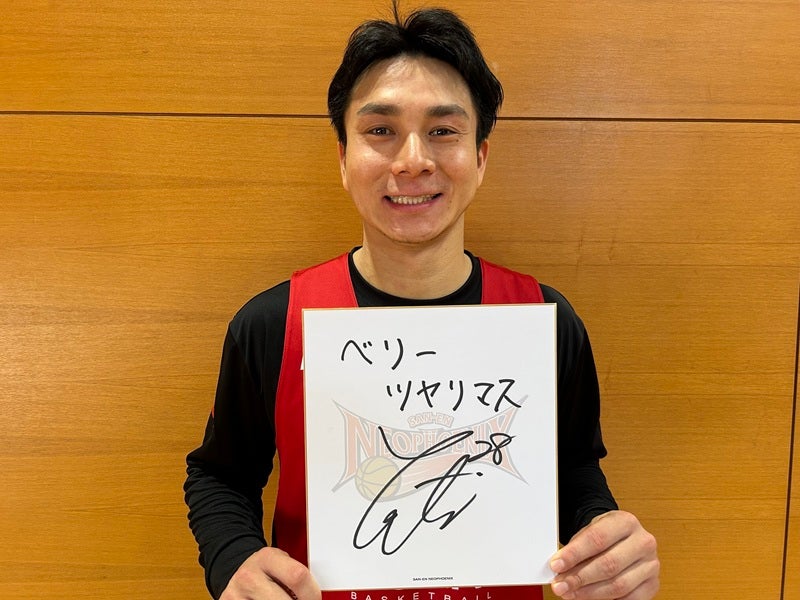 ベリー
ツヤリマス
SAN-EN
NEOPHOENIX
28
SAN-EN NEOPHOENIX
BASKETBALL